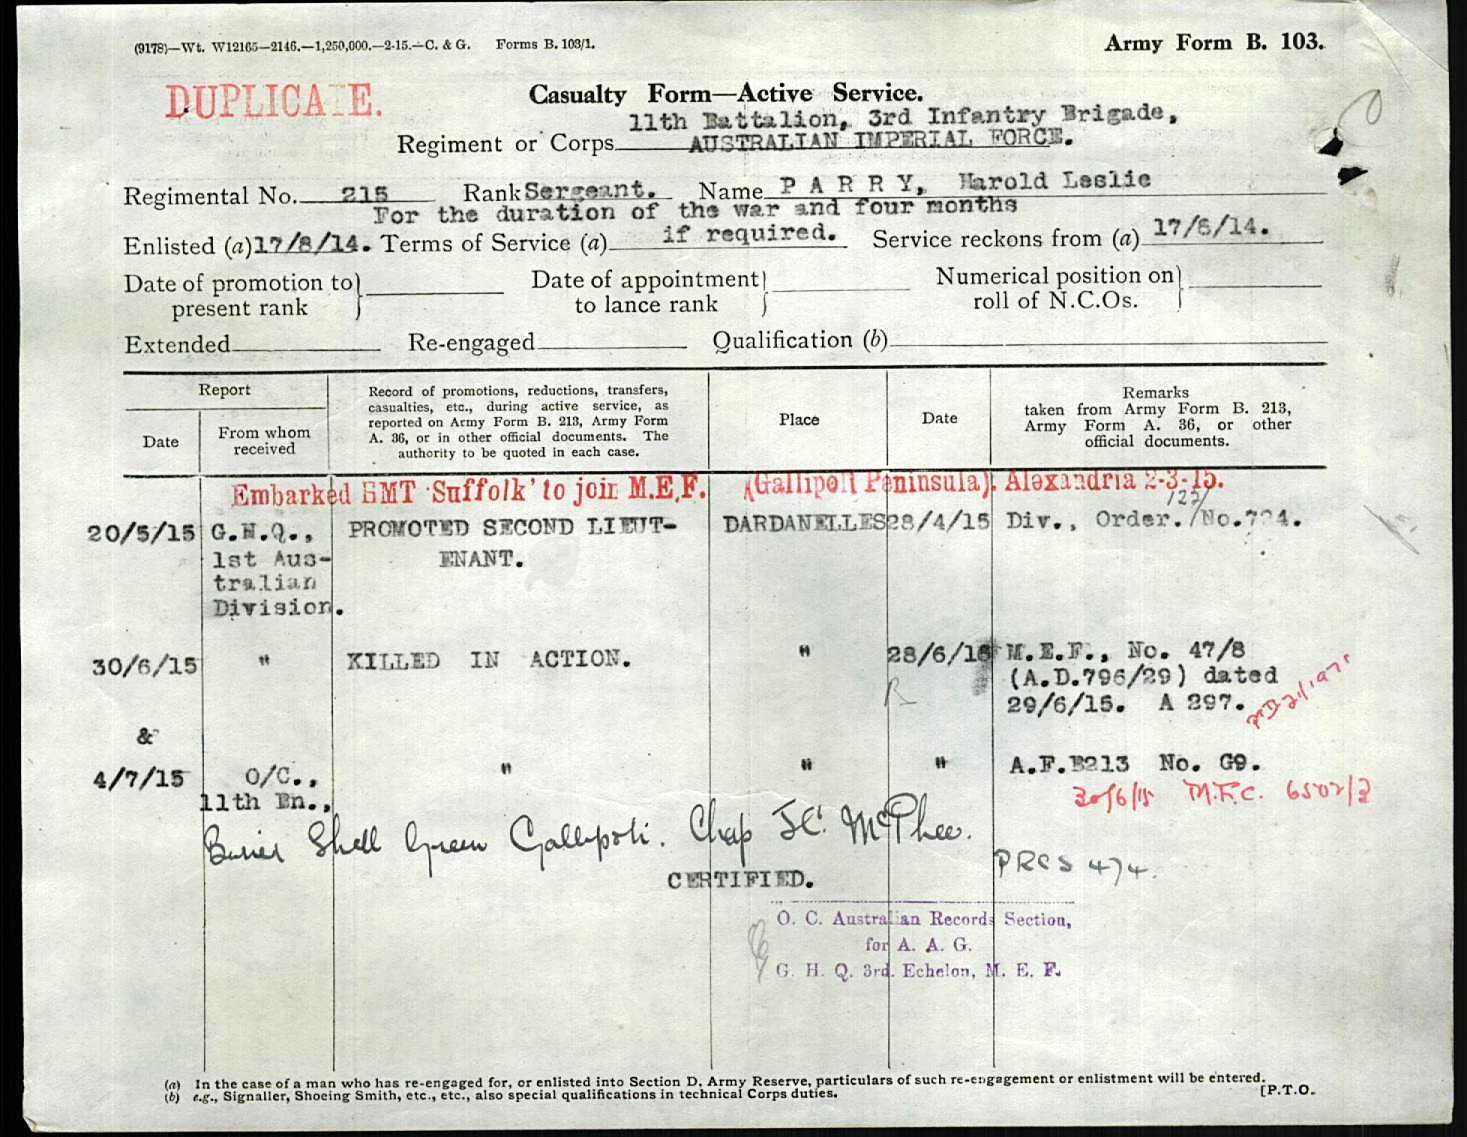 (9178)—Wt. W12165—2146.—1,250,000.—2-15.—C. & G. Forms B. 103/1.
Army Form B. 103.
DUPLICATE.
Casualty Form—Active Service.
11th Battalion, 3rd Infantry Brigade,
Regiment or Corps AUSTRALIAN IMPERIAL FORCE.
Regimental No. 215 Rank Sergeant. Name P A R R Y, Harold Leslie
For the duration of the war and four months
Enlisted (a) 17/8/14. Terms of Service (a) if required. Service reckons from (a) 17/8/14.
Date of promotion to } Date of appointment } Numerical position on }
present rank to lance rank roll of N.C.Os.
Extended Re-engaged Qualification (b)
Report
Date
From whom
received
Record of promotions, reductions, transfers,
casualties, etc., during active service, as
reported on Army Form B. 213, Army Form
A. 36, or in other official documents. The
authority to be quoted in each case.
Place
Date
Remarks
taken from Army Form B. 213,
Army Form A. 36, or other
official documents.
Embarked HMT 'Suffolk' to join M.E.F. (Gallipoli Peninsula). Alexandria 2-3-15.
122/
20/5/15 G.H.Q., PROMOTED SECOND LIEUT- DARDANELLES 28/4/15 Div., Order. /No.724.
1st Aus- ENANT.
tralian
Division.
30/6/15 " KILLED IN ACTION. " 28/6/15 M.E.F., No. 47/8
(A.D.796/29) dated
R 29/6/15. A 297.
&
4/7/15 O/C., " " " A.F.B213 No. G9.
11th Bn., 30/6/15 M.F.C. 6502/3
Buried Shell Green Gallipoli. Chap J.C. McPhee.
PRCS 474.
CERTIFIED.
O. C. Australian Records Section,
for A. A. G.
G. H. Q. 3rd. Echelon, M. E. F.
(a) In the case of a man who has re-engaged for, or enlisted into Section D, Army Reserve, particulars of such re-engagement or enlistment will be entered.
(b) e.g., Signaller, Shoeing Smith, etc., etc., also special qualifications in technical Corps duties.
[P.T.O.